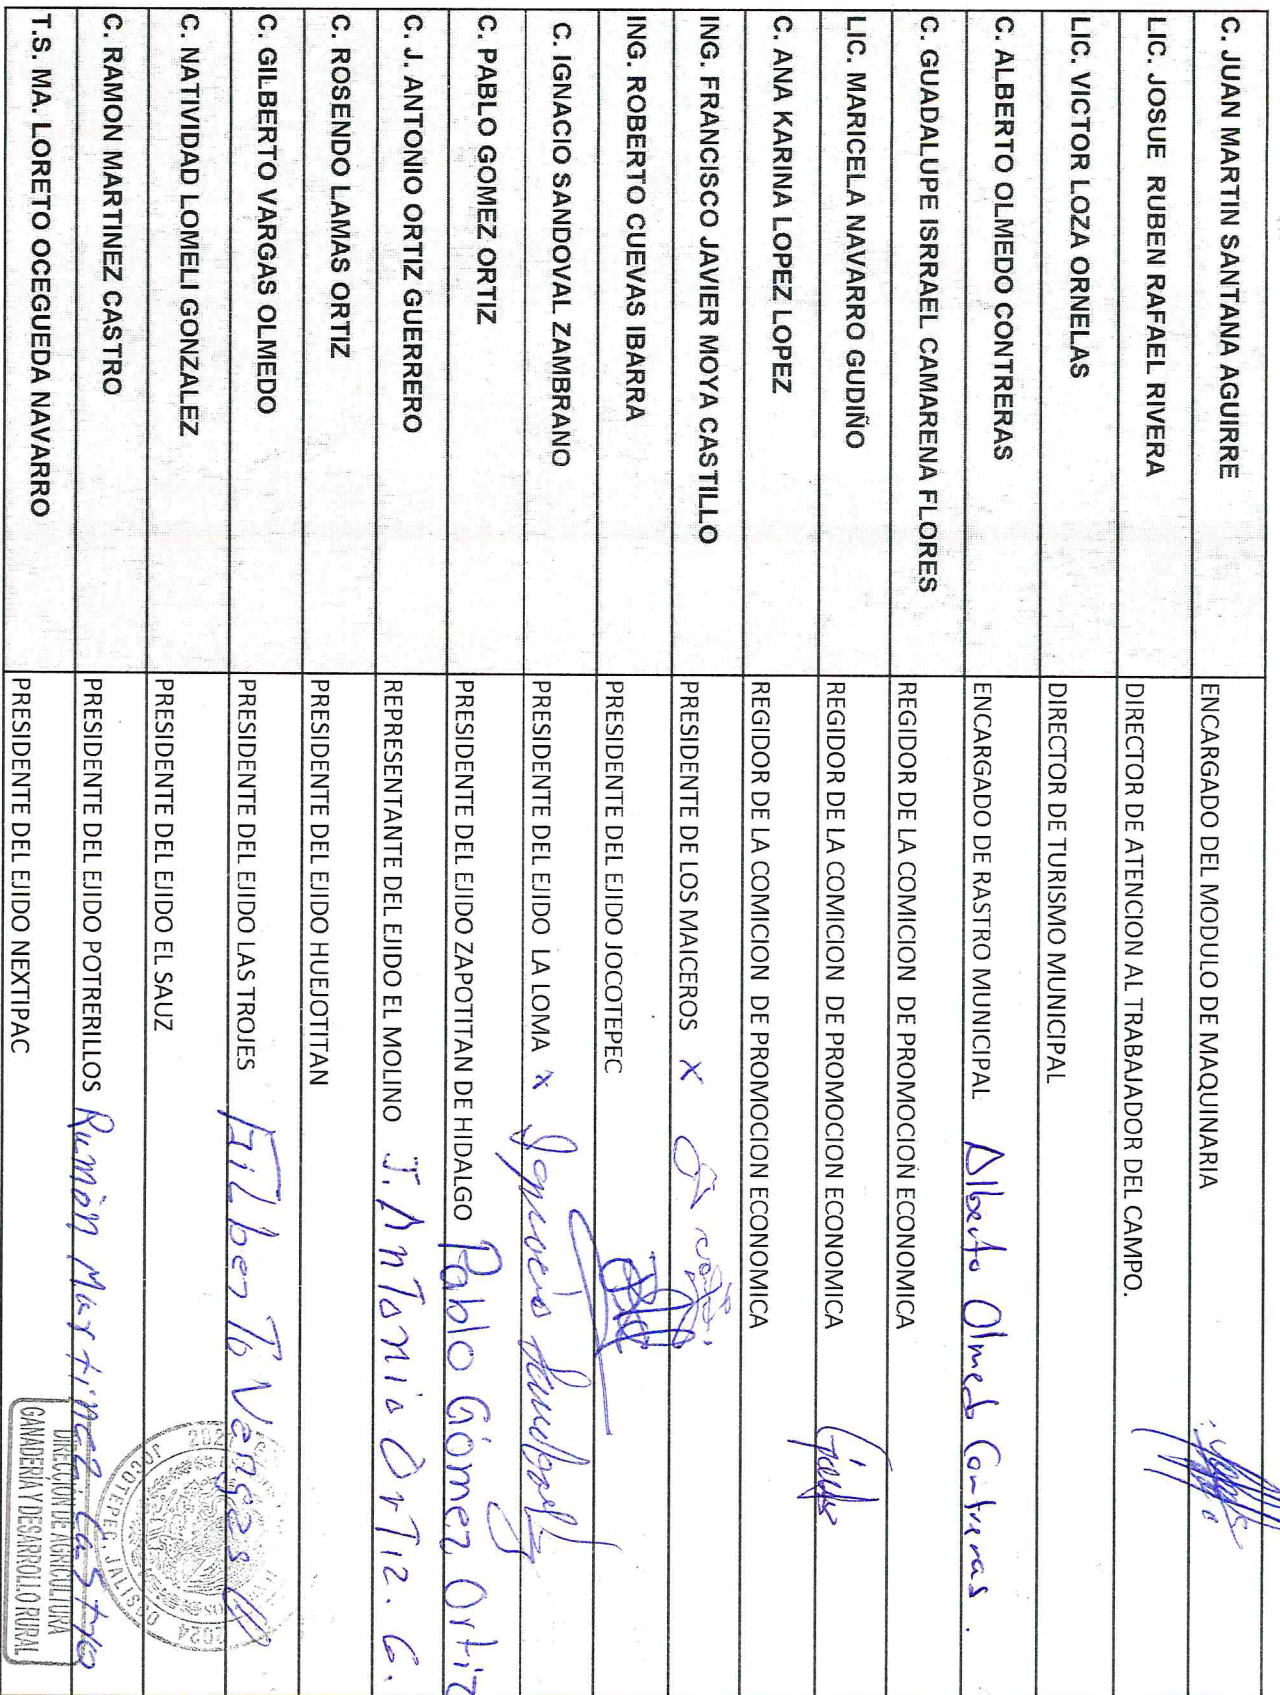 C. JUAN MARTIN SANTANA AGUIRRE ENCARGADO DEL MODULO DE MAQUINARIA
LIC. JOSUE RUBEN RAFAEL RIVERA DIRECTOR DE ATENCION AL TRABAJADOR DEL CAMPO.
LIC. VICTOR LOZA ORNELAS DIRECTOR DE TURISMO MUNICIPAL
C. ALBERTO OLMEDO CONTRERAS ENCARGADO DE RASTRO MUNICIPAL Alberto Olmedo Contreras.
C. GUADALUPE ISRRAEL CAMARENA FLORES REGIDOR DE LA COMICION DE PROMOCION ECONOMICA
LIC. MARICELA NAVARRO GUDIÑO REGIDOR DE LA COMICION DE PROMOCION ECONOMICA
C. ANA KARINA LOPEZ LOPEZ REGIDOR DE LA COMICION DE PROMOCION ECONOMICA
ING. FRANCISCO JAVIER MOYA CASTILLO PRESIDENTE DE LOS MAICEROS x
ING. ROBERTO CUEVAS IBARRA PRESIDENTE DEL EJIDO JOCOTEPEC
C. IGNACIO SANDOVAL ZAMBRANO PRESIDENTE DEL EJIDO LA LOMA x Ignacio Sandoval Z
C. PABLO GOMEZ ORTIZ PRESIDENTE DEL EJIDO ZAPOTITAN DE HIDALGO Pablo Gómez Ortiz
C. J. ANTONIO ORTIZ GUERRERO REPRESENTANTE DEL EJIDO EL MOLINO J. AnTonio OrTiz. G.
C. ROSENDO LAMAS ORTIZ PRESIDENTE DEL EJIDO HUEJOTITAN
C. GILBERTO VARGAS OLMEDO PRESIDENTE DEL EJIDO LAS TROJES GilberTo Vargas
C. NATIVIDAD LOMELI GONZALEZ PRESIDENTE DEL EJIDO EL SAUZ
C. RAMON MARTINEZ CASTRO PRESIDENTE DEL EJIDO POTRERILLOS Ramón Martinez Castro
T.S. MA. LORETO OCEGUEDA NAVARRO PRESIDENTE DEL EJIDO NEXTIPAC
JOCOTEPEC, JALISCO
2024
DIRECCIÓN DE AGRICULTURA
GANADERÍA Y DESARROLLO RURAL